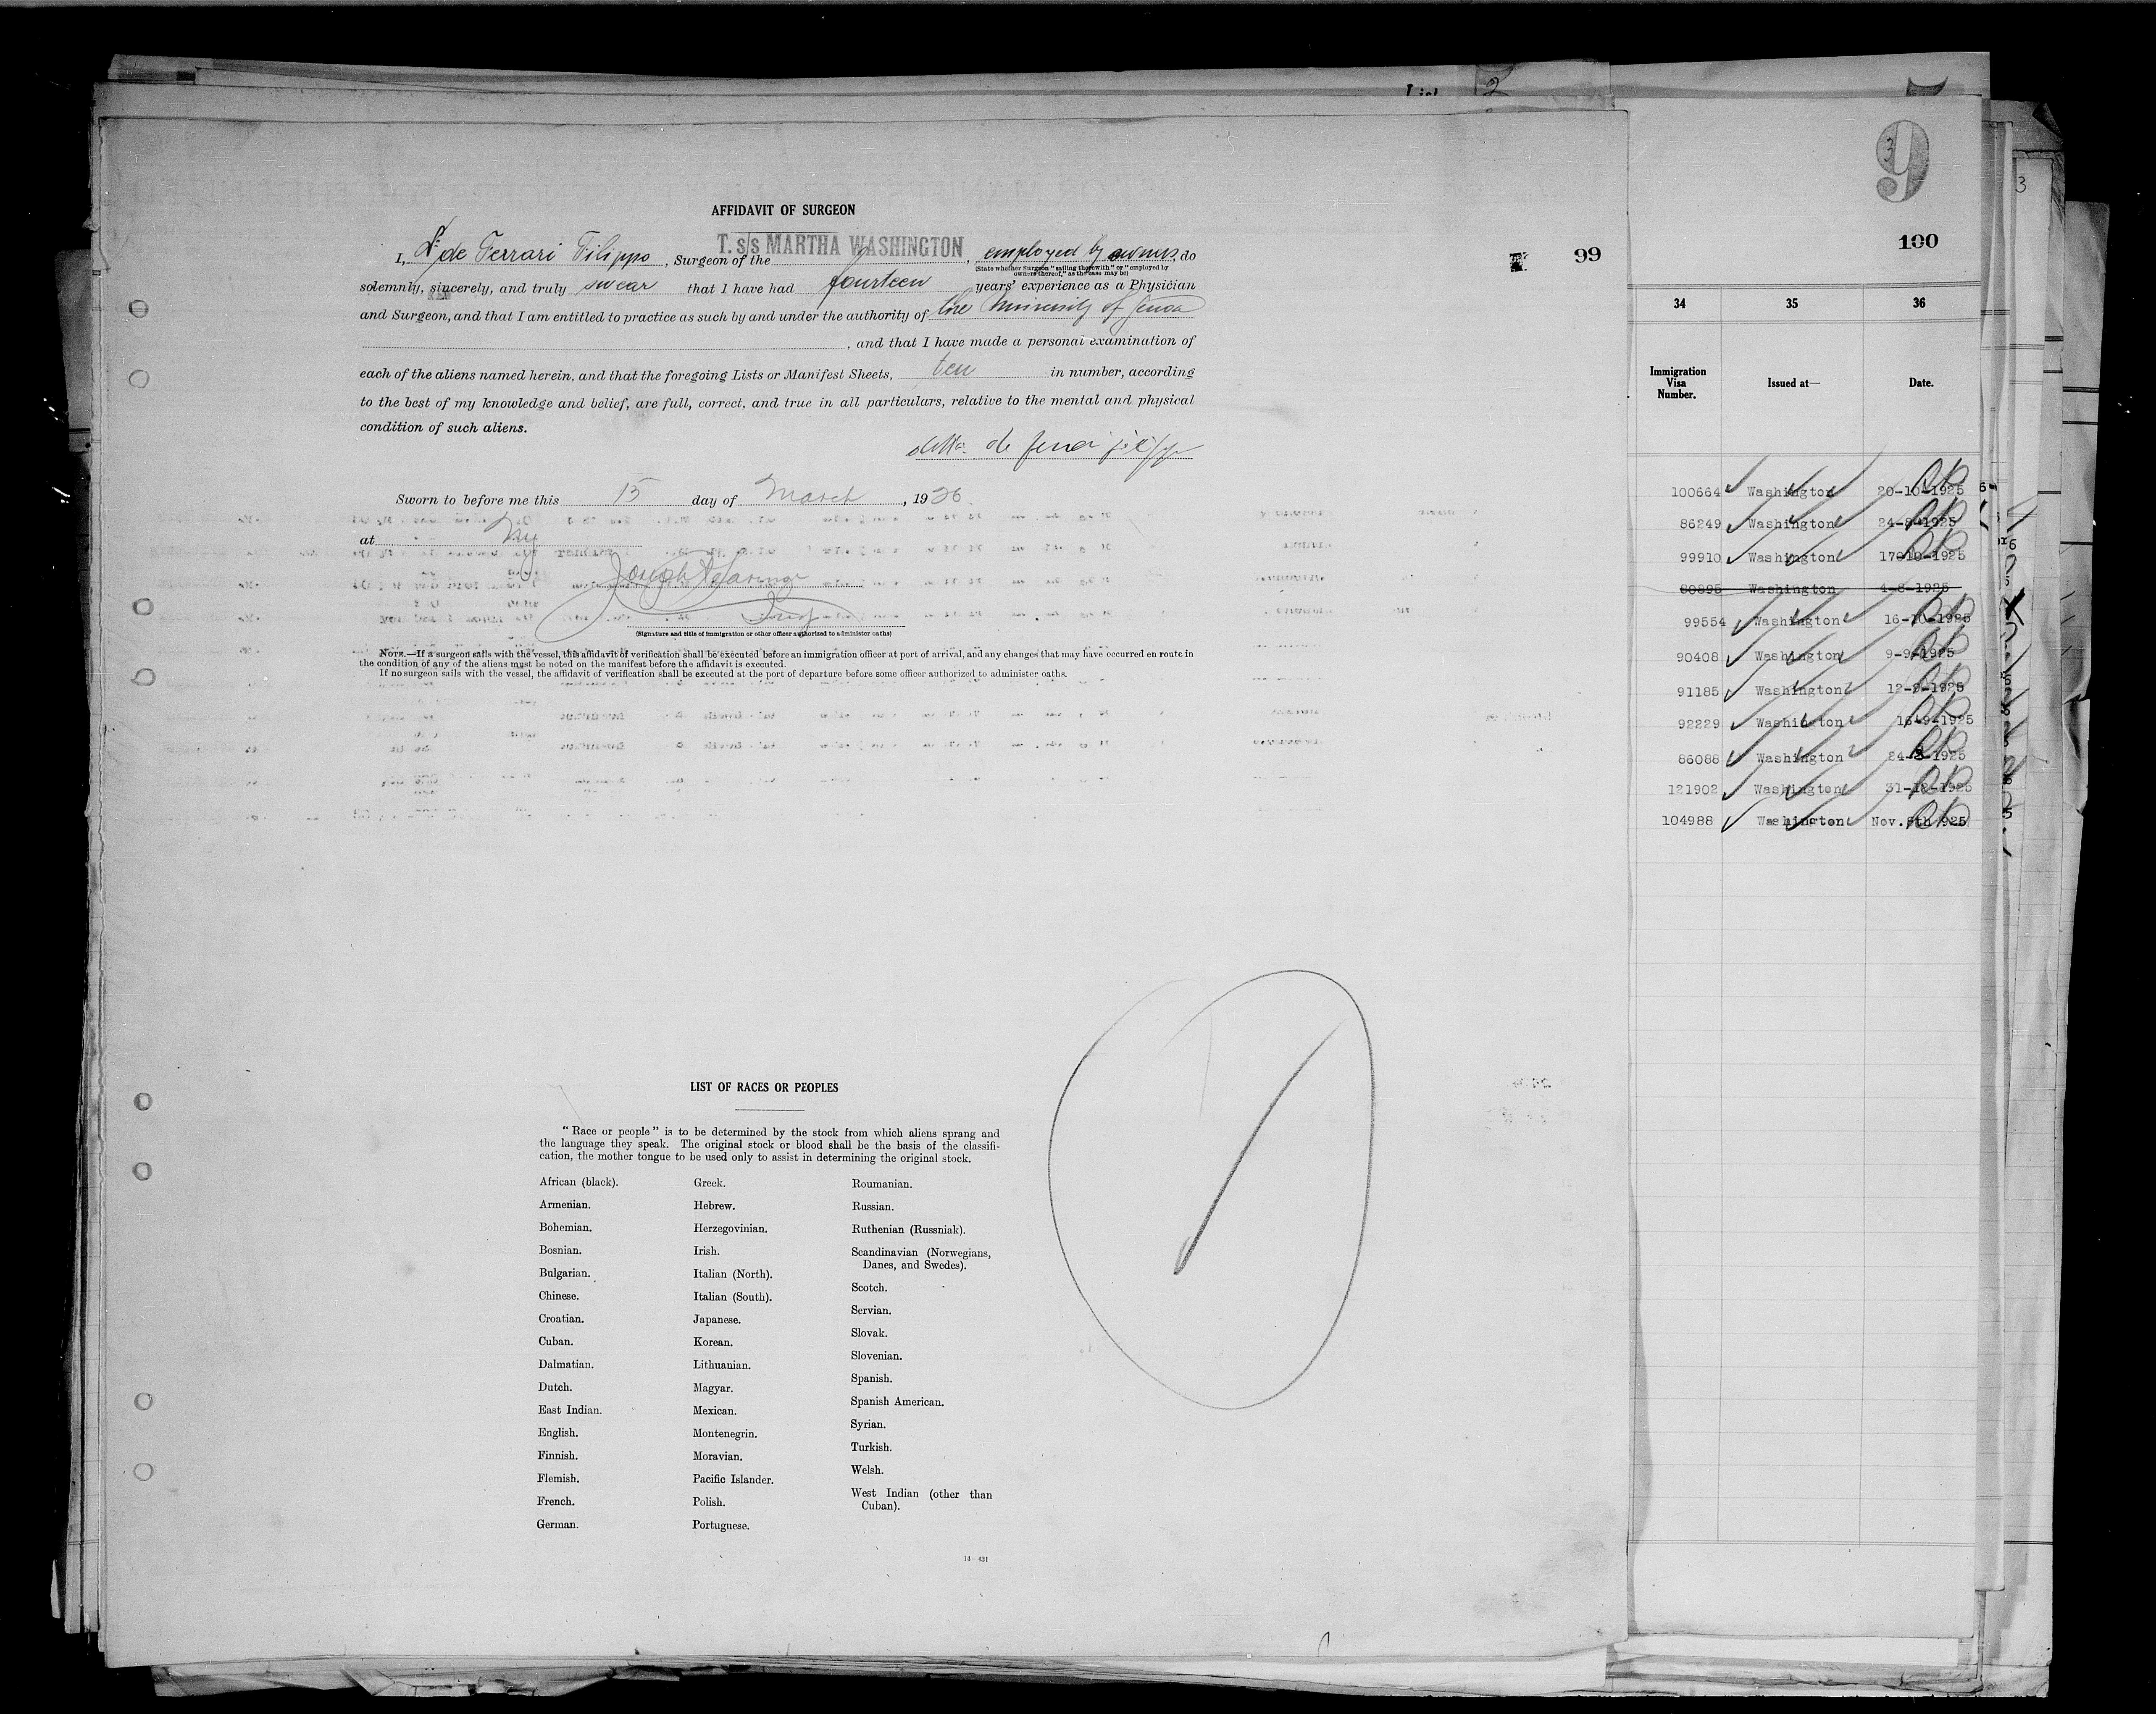 List 2
9
3
3
AFFIDAVIT OF SURGEON
I, Dr de Ferrari Filippo, Surgeon of the T. s/s MARTHA WASHINGTON, employed by owners, do
(State whether Surgeon "sailing therewith" or "employed by
owners thereof," as the case may be)
99
100
solemnly, sincerely, and truly swear that I have had fourteen years' experience as a Physician
and Surgeon, and that I am entitled to practice as such by and under the authority of the University of Genoa
, and that I have made a personal examination of
each of the aliens named herein, and that the foregoing Lists or Manifest Sheets, ten in number, according
to the best of my knowledge and belief, are full, correct, and true in all particulars, relative to the mental and physical
condition of such aliens.
de Ferrari Filippo
Sworn to before me this 15 day of March, 1926
at NY
Joseph
Insp
(Signature and title of immigration or other officer authorized to administer oaths)
NOTE.—If a surgeon sails with the vessel, this affidavit of verification shall be executed before an immigration officer at port of arrival, and any changes that may have occurred en route in
the condition of any of the aliens must be noted on the manifest before the affidavit is executed.
If no surgeon sails with the vessel, the affidavit of verification shall be executed at the port of departure before some officer authorized to administer oaths.
LIST OF RACES OR PEOPLES
"Race or people" is to be determined by the stock from which aliens sprang and
the language they speak. The original stock or blood shall be the basis of the classifi-
cation, the mother tongue to be used only to assist in determining the original stock.
African (black).
Armenian.
Bohemian.
Bosnian.
Bulgarian.
Chinese.
Croatian.
Cuban.
Dalmatian.
Dutch.
East Indian.
English.
Finnish.
Flemish.
French.
German.
Greek.
Hebrew.
Herzegovinian.
Irish.
Italian (North).
Italian (South).
Japanese.
Korean.
Lithuanian.
Magyar.
Mexican.
Montenegrin.
Moravian.
Pacific Islander.
Polish.
Portuguese.
Roumanian.
Russian.
Ruthenian (Russniak).
Scandinavian (Norwegians,
Danes, and Swedes).
Scotch.
Servian.
Slovak.
Slovenian.
Spanish.
Spanish American.
Syrian.
Turkish.
Welsh.
West Indian (other than
Cuban).
14—431
34 35 36
Immigration
Visa
Number.
Issued at—
Date.
100664 Washington 20-10-1925
86249 Washington 24-8-1925
99910 Washington 17-10-1925
80895 Washington 4-8-1925
99554 Washington 16-10-1925
90408 Washington 9-9-1925
91185 Washington 12-9-1925
92229 Washington 16-9-1925
86088 Washington 24-8-1925
121902 Washington 31-12-1925
104988 Washington Nov. 925